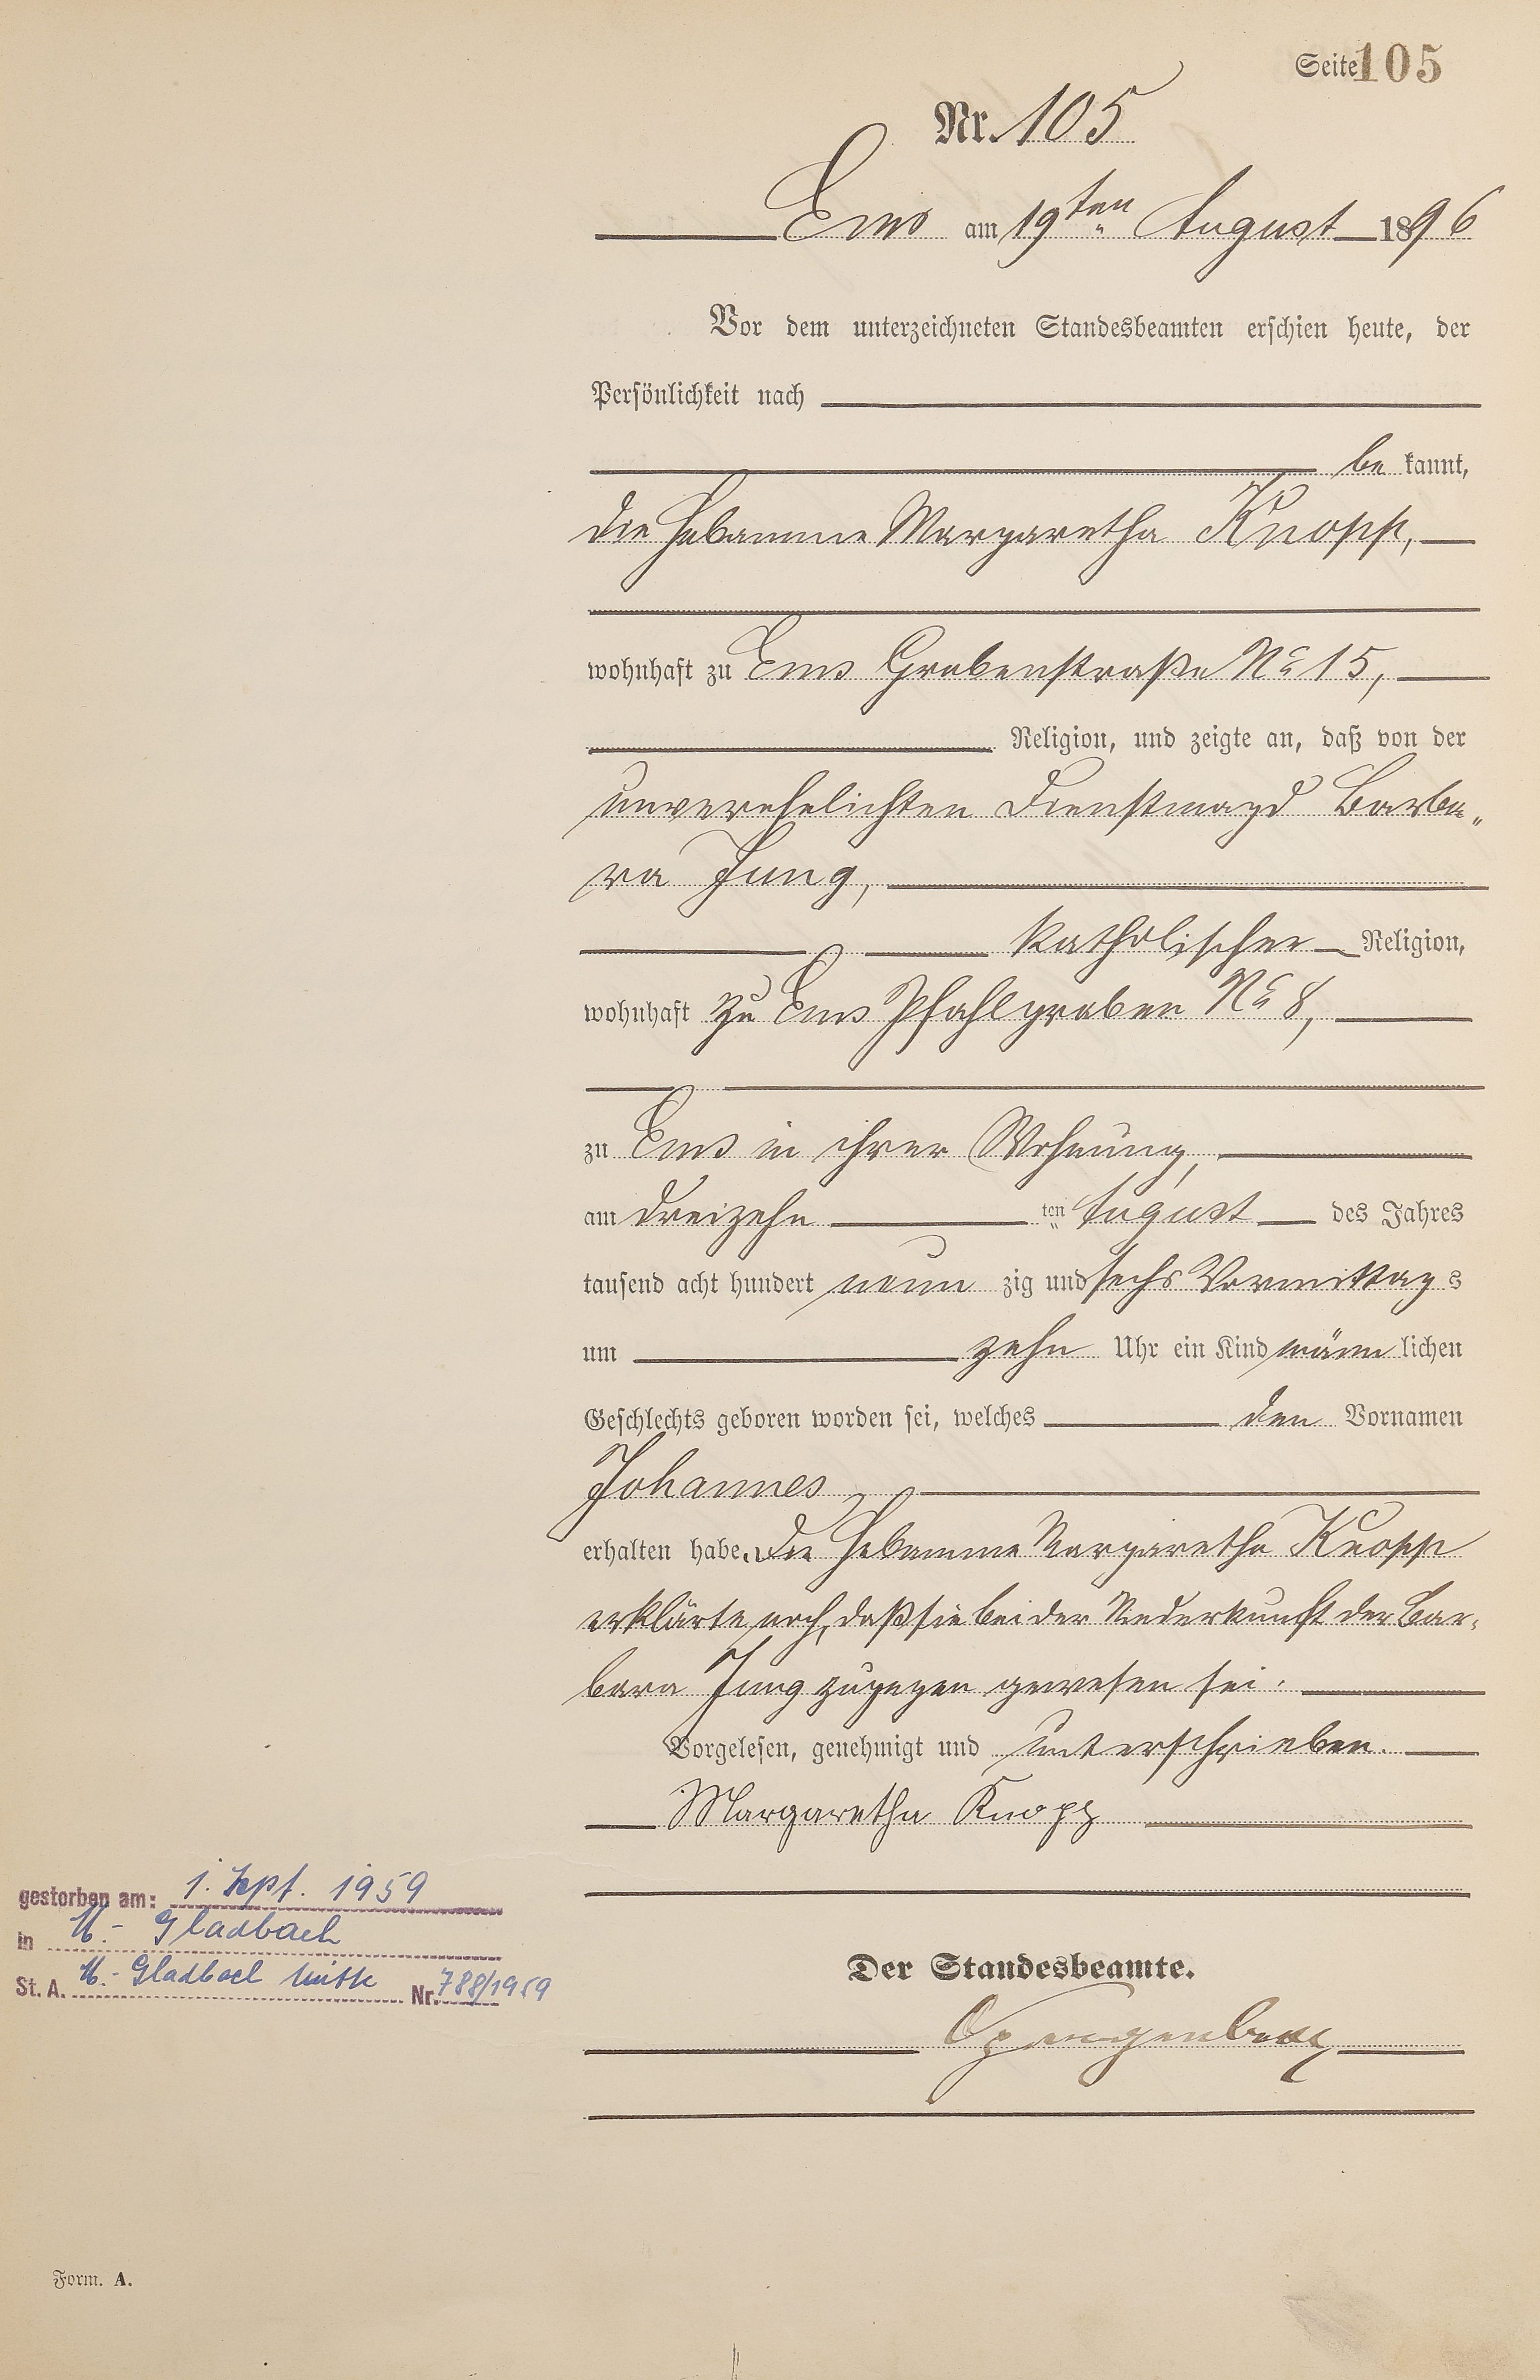 Seite 105
Nr. 105
Ems am 19ten August 1896
Vor dem unterzeichneten Standesbeamten erschien heute, der
Persönlichkeit nach
be kannt,
die Hebamme Margaretha Knopp,
wohnhaft zu Ems Grabenstraße No 15,
Religion, und zeigte an, daß von der
unverehelichten Dienstmagd Barba„
ra Jung,
katholischer Religion,
wohnhaft zu Ems Pfahlgraben No 8,
zu Ems in ihrer Wohnung,
am dreizehn ten August des Jahres
tausend acht hundert neun zig und sechs Vormittag s
um zehn Uhr ein Kind männ lichen
Geschlechts geboren worden sei, welches den Vornamen
Johannes
erhalten habe. Die Hebamme Margaretha Knopp
erklärte noch, daß sie bei der Niederkunft der Bar-
bara Jung zugegen gewesen sei.
Vorgelesen, genehmigt und unterschrieben.
Margaretha Knopp
gestorben am: 1. Sept. 1959
in M.- Gladbach
St. A. M.- Gladbach Mitte Nr. 788/1959
Der Standesbeamte.
Form. A.